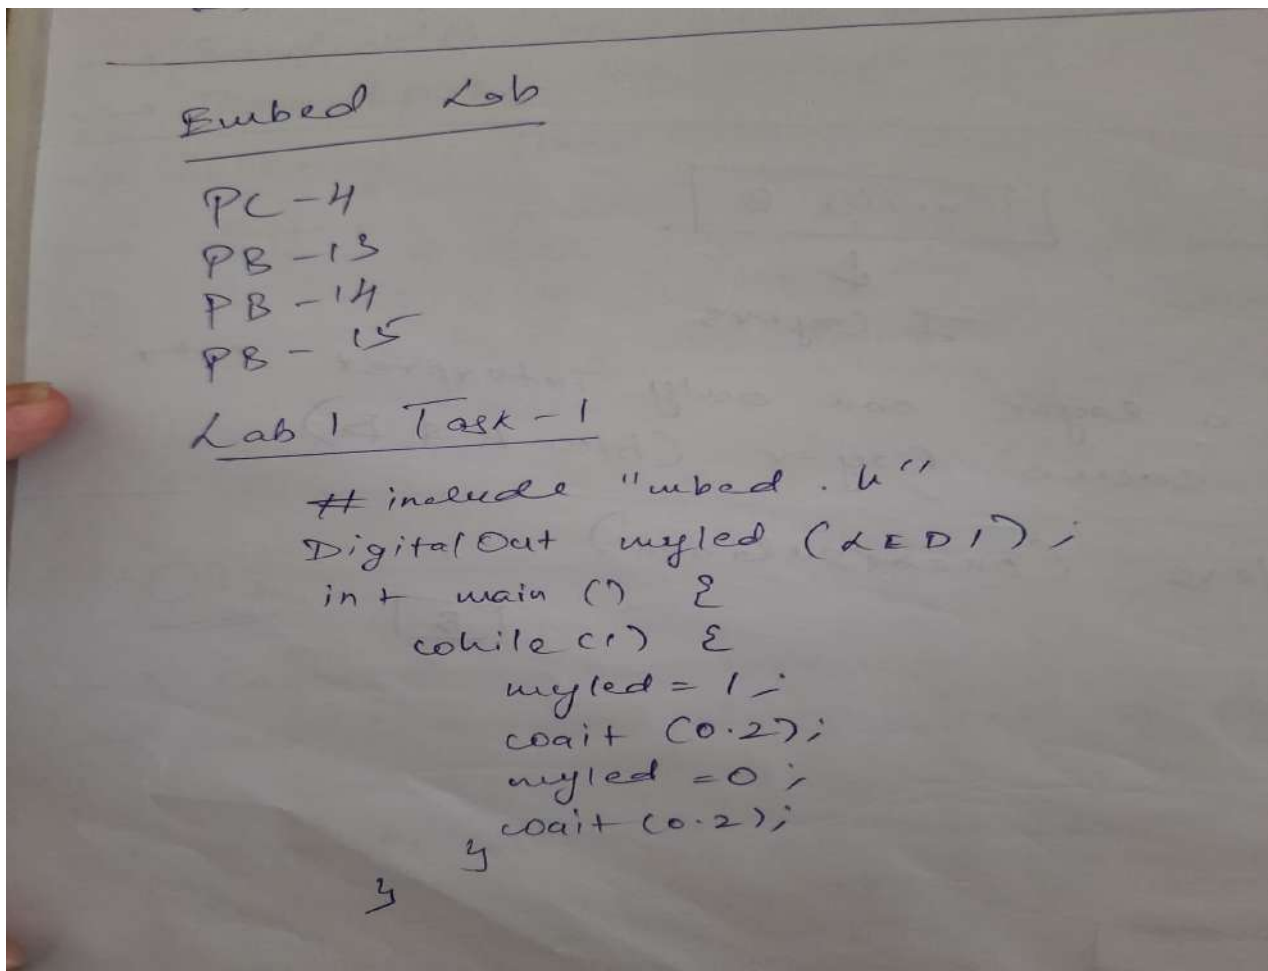 Embed Lab
PC-4
PB-13
PB-14
PB-15
Lab 1 Task-1
# include "mbed.h"
DigitalOut myled (LED1);
int main () {
while (1) {
myled = 1;
wait (0.2);
myled = 0;
wait (0.2);
}
}